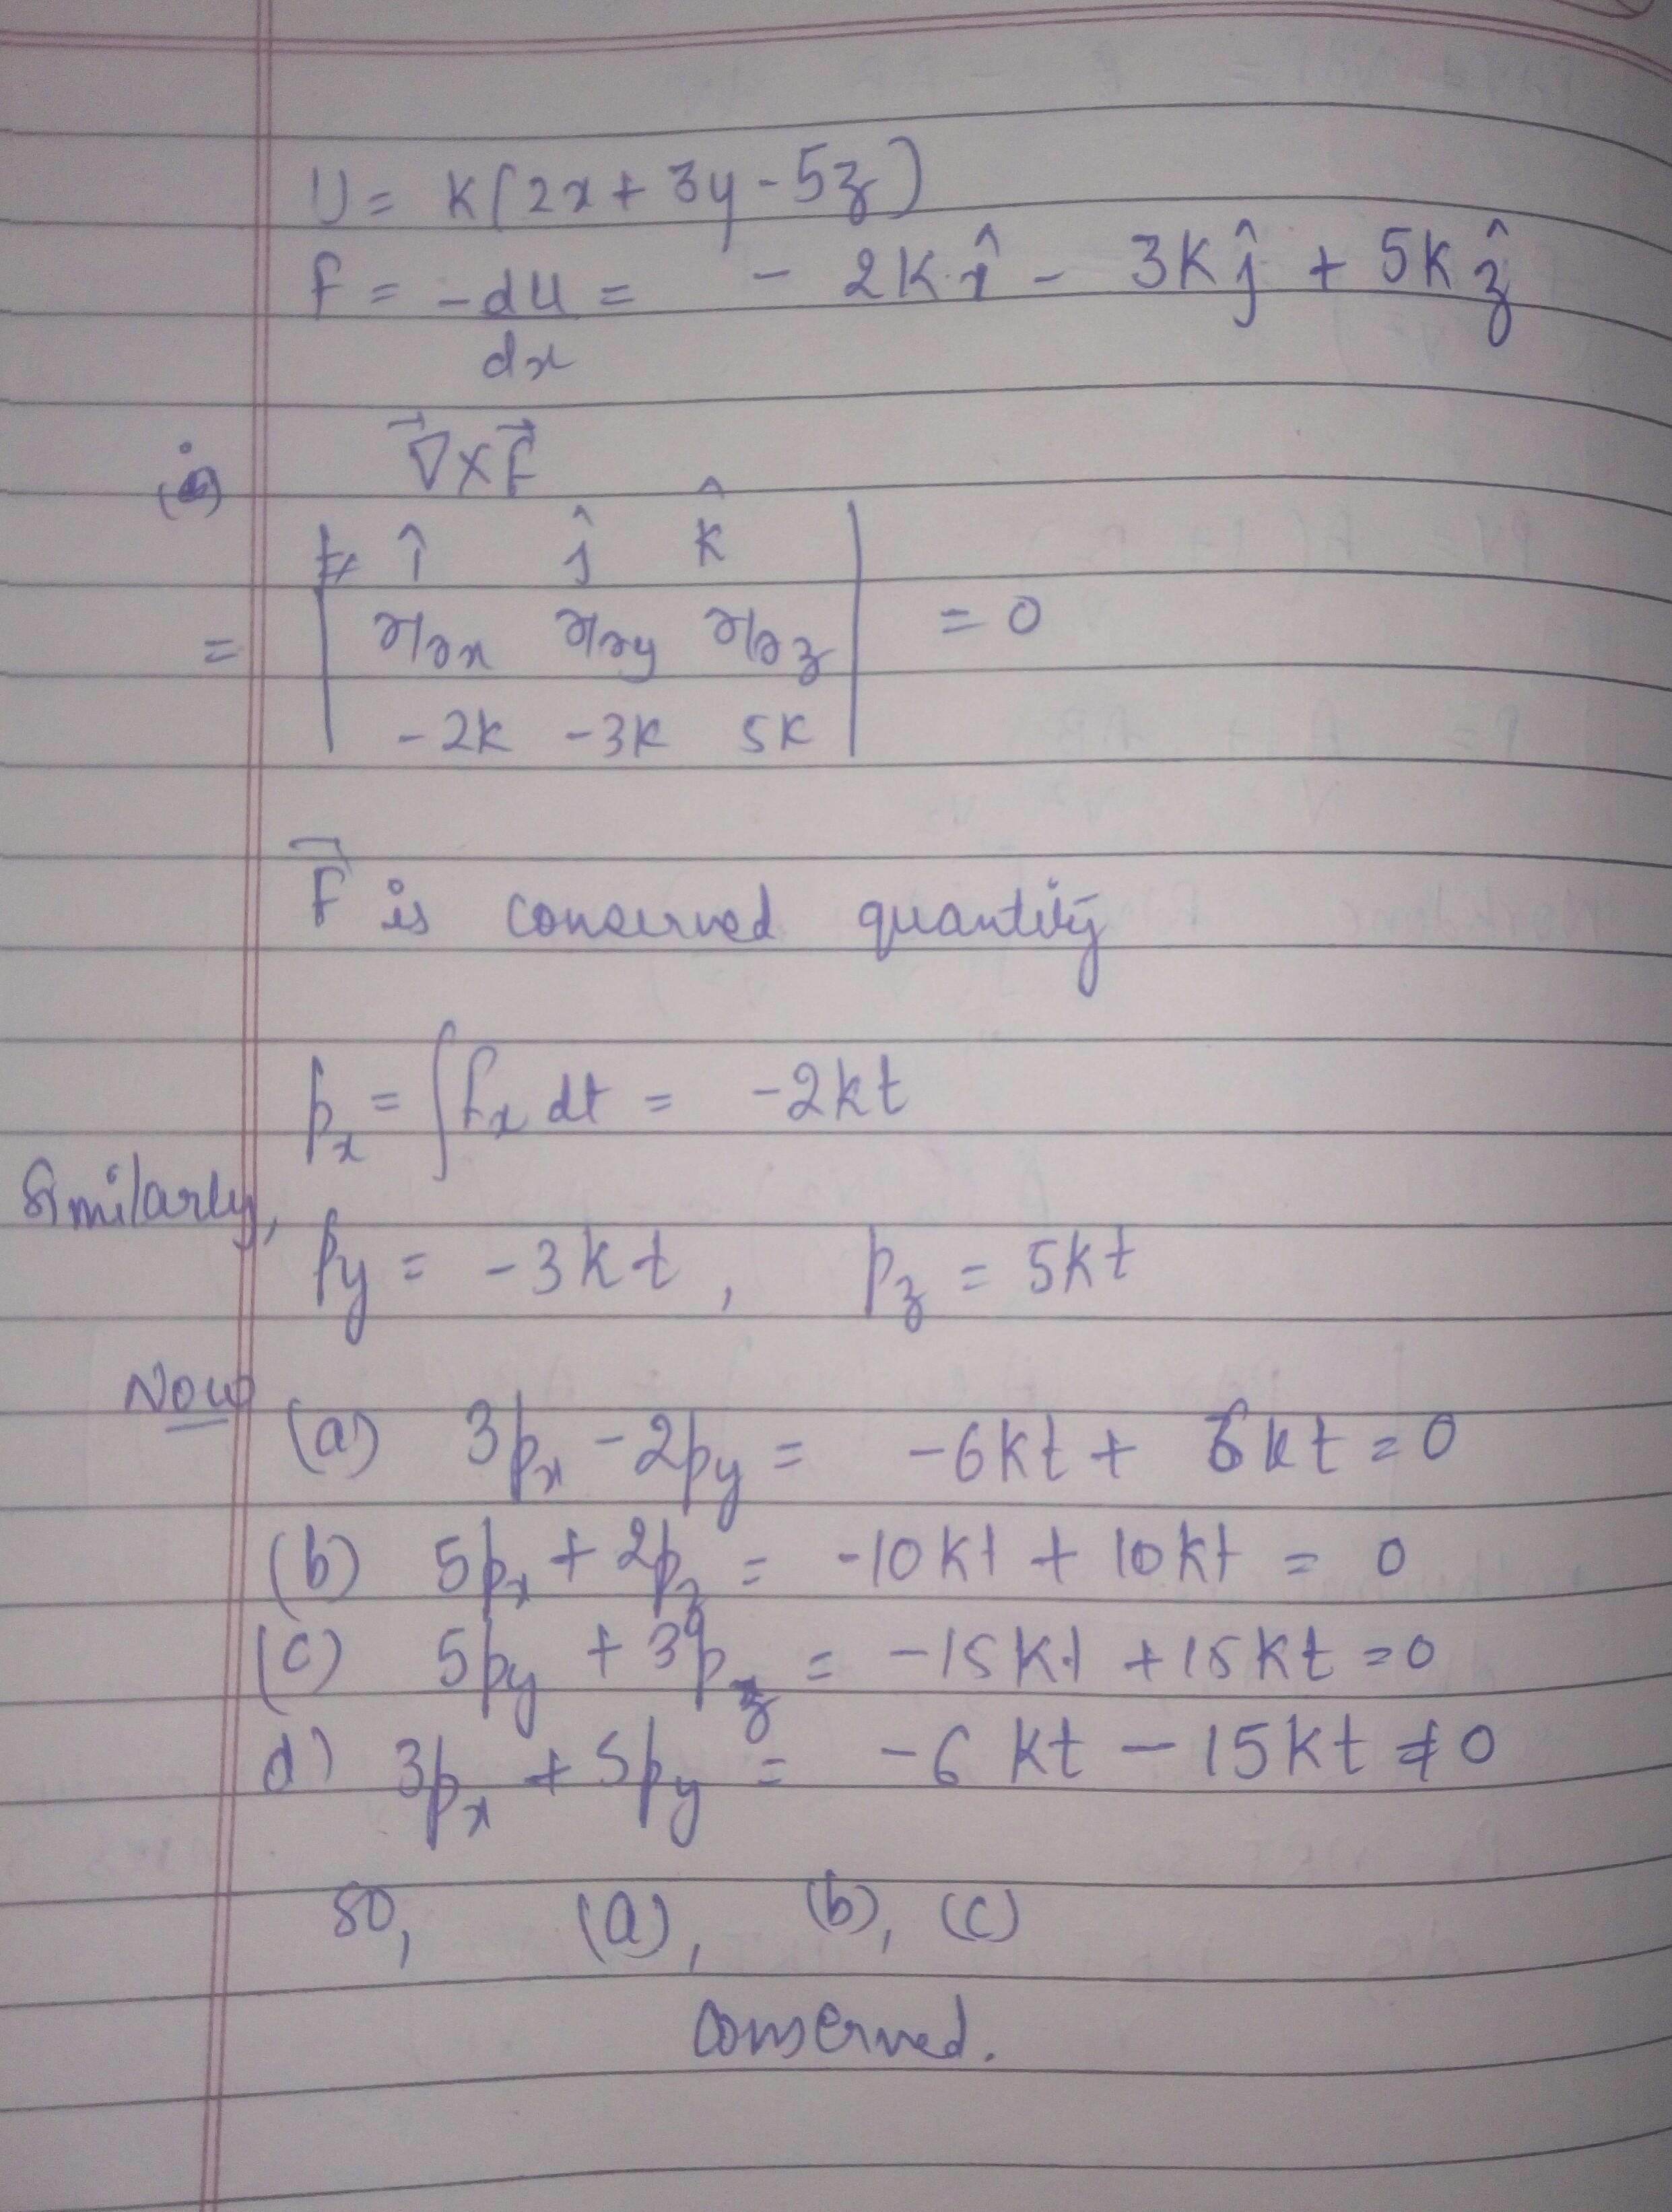 U = K(2x + 3y - 5z)
F = -dU/dx = - 2K î - 3K ĵ + 5K ẑ
∇⃗ × F⃗
î ĵ k̂
= | ∂/∂x ∂/∂y ∂/∂z | = 0
-2K -3K 5K
F⃗ is conserved quantity
p_x = ∫F_x dt = -2kt
Similarly,
p_y = -3kt, p_z = 5kt
Now
(a) 3p_x - 2p_y = -6kt + 6kt = 0
(b) 5p_x + 2p_z = -10kt + 10kt = 0
(c) 5p_y + 3p_z = -15kt + 15kt = 0
d) 3p_x + 5p_y = -6kt - 15kt ≠ 0
so, (a), (b), (c)
conserved.